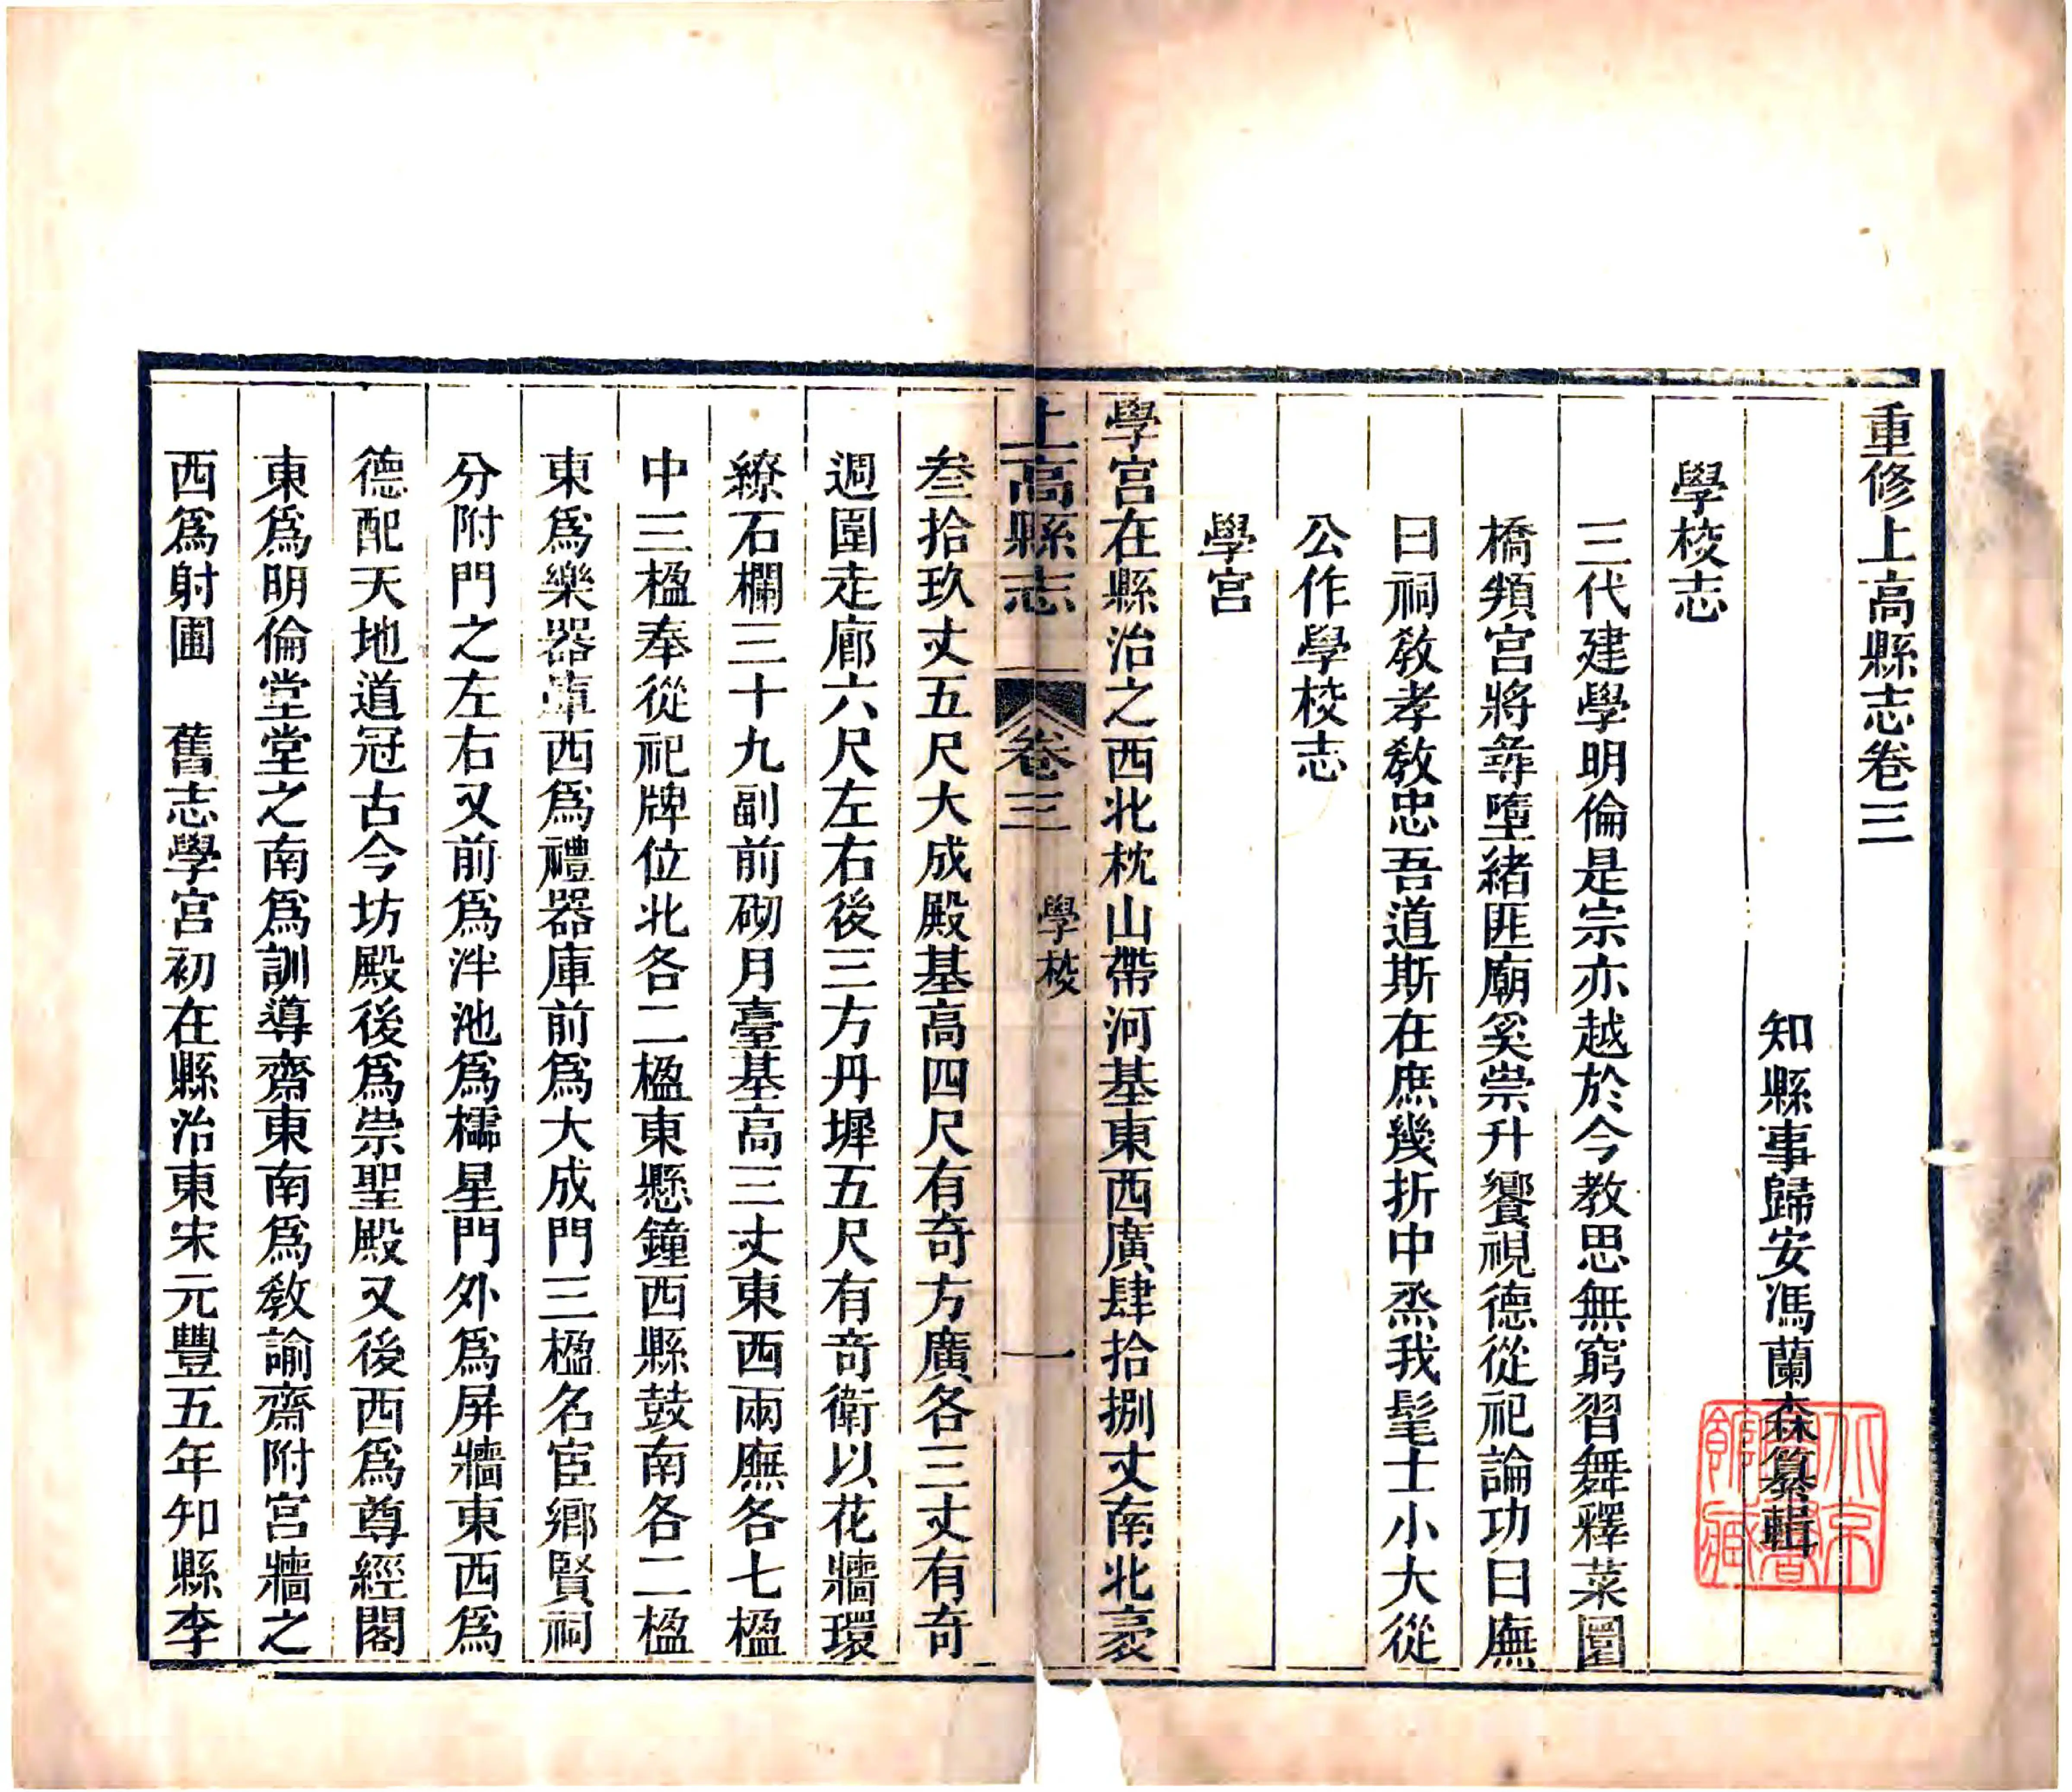 重修上高縣志卷三
知縣事歸安馮蘭森纂輯
學校志
三代建學明倫是宗亦越於今教思無窮習舞釋菜圜
橋頖宮將尋墮緒匪廟奚崇升饗視德從祀論功曰廡
曰祠敎孝敎忠吾道斯在庶幾折中烝我髦士小大從
公作學校志
學宮
學宮在縣治之西北枕山帶河基東西廣肆拾捌丈南北袤
上高縣志 卷三 學校 一
叁拾玖丈五尺大成殿基高四尺有奇方廣各三丈有奇
週圍走廊六尺左右後三方丹墀五尺有奇衛以花牆環
繚石欄三十九副前砌月臺基高三丈東西兩廡各七楹
中三楹奉從祀牌位北各二楹東懸鐘西縣鼓南各二楹
東爲樂器庫西爲禮器庫前爲大成門三楹名宦鄉賢祠
分附門之左右又前爲泮池爲櫺星門外爲屏牆東西爲
德配天地道冠古今坊殿後爲崇聖殿又後西爲尊經閣
東爲明倫堂堂之南爲訓導齋東南爲敎諭齋附宮牆之
西爲射圃 舊志學宮初在縣治東宋元豐五年知縣李
北京圖書館藏